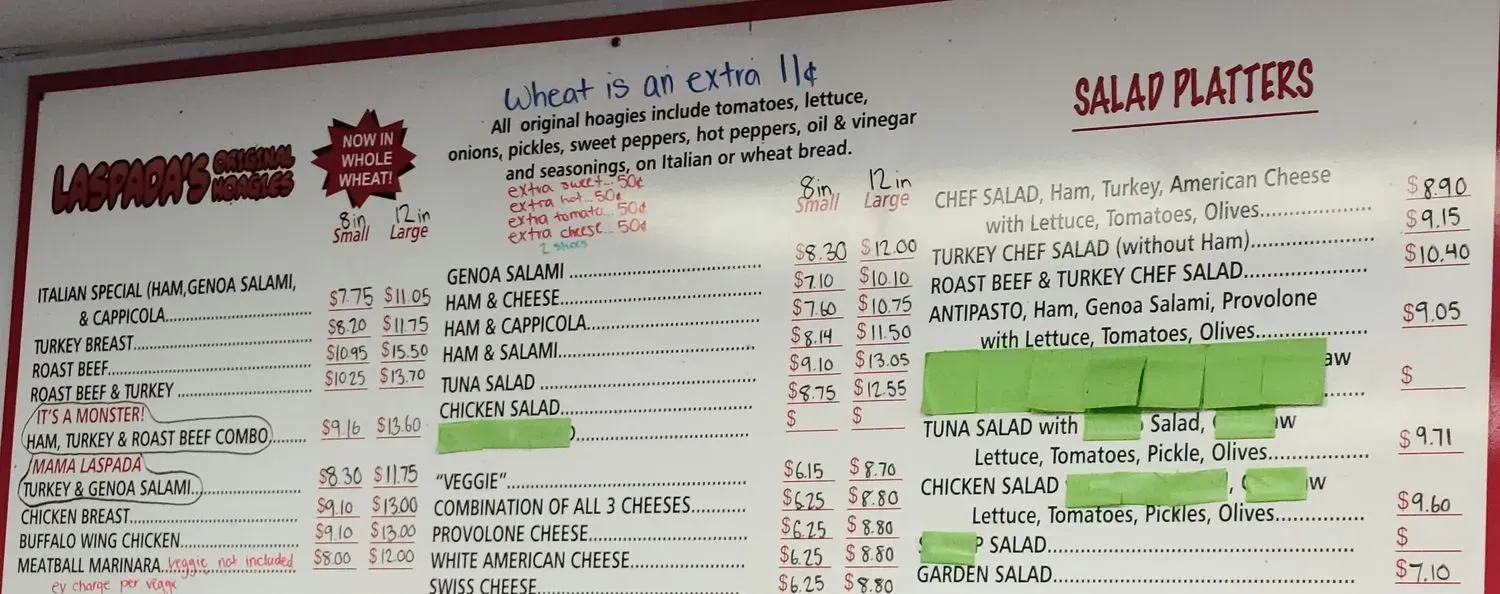 LASPADA'S ORIGINAL HOAGIES
NOW IN
WHOLE
WHEAT!
8in 12in
Small Large
ITALIAN SPECIAL (HAM,GENOA SALAMI,
& CAPPICOLA $7.75 $11.05
TURKEY BREAST $8.20 $11.75
ROAST BEEF $10.95 $15.50
ROAST BEEF & TURKEY $10.25 $13.70
IT'S A MONSTER!
HAM, TURKEY & ROAST BEEF COMBO $9.16 $13.60
MAMA LASPADA
TURKEY & GENOA SALAMI $8.30 $11.75
CHICKEN BREAST $9.10 $13.00
BUFFALO WING CHICKEN $9.10 $13.00
MEATBALL MARINARA veggie not included $8.00 $12.00
charge per veggie
Wheat is an extra 11¢
All original hoagies include tomatoes, lettuce,
onions, pickles, sweet peppers, hot peppers, oil & vinegar
and seasonings, on Italian or wheat bread.
extra sweet... 50¢
extra hot... 50¢
extra tomato... 50¢
extra cheese... 50¢
2 slices
8in 12in
Small Large
GENOA SALAMI $8.30 $12.00
HAM & CHEESE $7.10 $10.10
HAM & CAPPICOLA $7.60 $10.75
HAM & SALAMI $8.14 $11.50
TUNA SALAD $9.10 $13.05
CHICKEN SALAD $8.75 $12.55
$ $
"VEGGIE" $6.15 $8.70
COMBINATION OF ALL 3 CHEESES $6.25 $8.80
PROVOLONE CHEESE $6.25 $8.80
WHITE AMERICAN CHEESE $6.25 $8.80
SWISS CHEESE $6.25 $8.80
SALAD PLATTERS
CHEF SALAD, Ham, Turkey, American Cheese
with Lettuce, Tomatoes, Olives $8.90
TURKEY CHEF SALAD (without Ham) $9.15
ROAST BEEF & TURKEY CHEF SALAD $10.40
ANTIPASTO, Ham, Genoa Salami, Provolone
with Lettuce, Tomatoes, Olives $9.05
aw
$
TUNA SALAD with Salad, aw
Lettuce, Tomatoes, Pickle, Olives $9.71
CHICKEN SALAD , w
Lettuce, Tomatoes, Pickles, Olives $9.60
P SALAD $
GARDEN SALAD $7.10